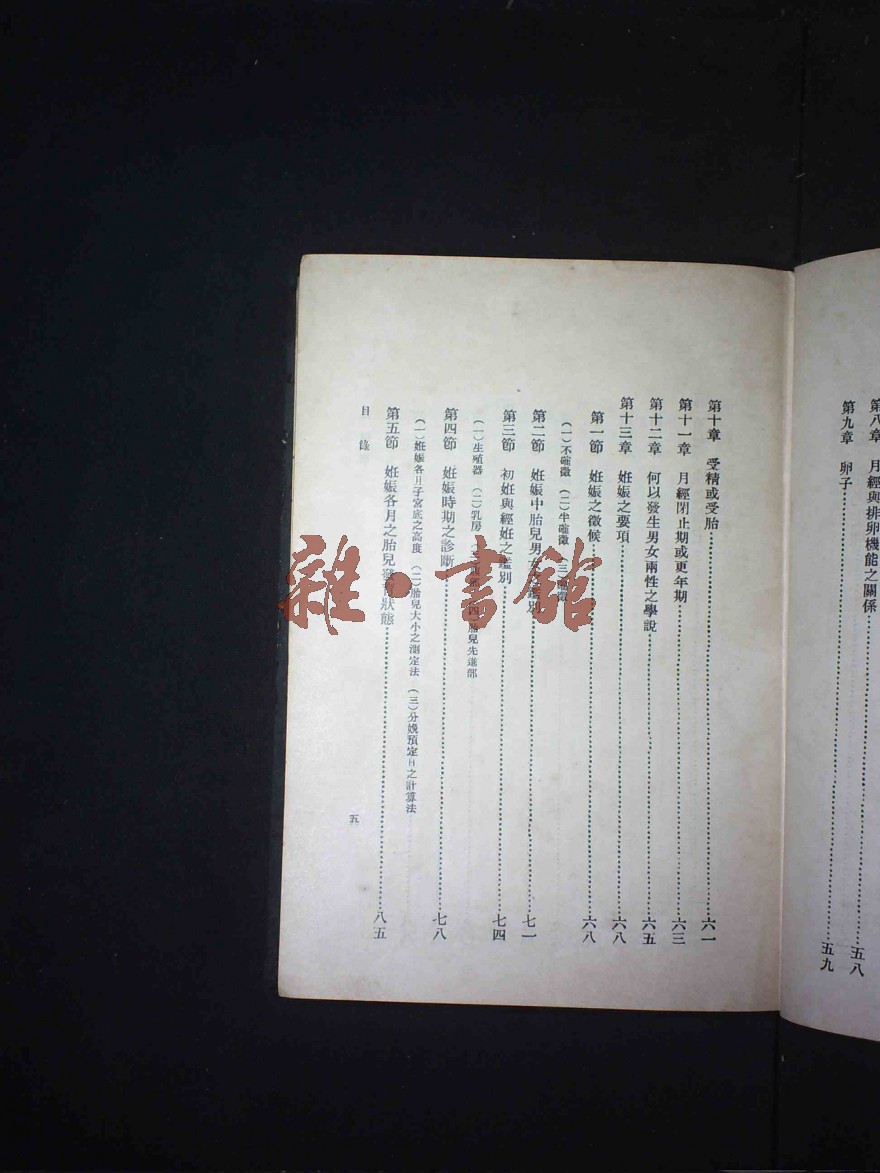 第八章　月經與排卵機能之關係……五八
第九章　卵子……五九
第十章　受精或受胎……六一
第十一章　月經閉止期或更年期……六三
第十二章　何以發生男女兩性之學說……六五
第十三章　姙娠之要項……六八
第一節　姙娠之徵候……六八
（一）不確徵　（二）半確徵　（三）
第二節　姙娠中胎兒男女　鑑別……七一
第三節　初姙與經姙之鑑別……七四
（一）生殖器　（二）乳房　胎兒先進部
第四節　姙娠時期之診斷……七八
（一）姙娠各月子宮底之高度　（二）胎兒大小之測定法　（三）分娩預定日之計算法
第五節　姙娠各月之胎兒發育狀態……八五
目錄
五
雜·書館